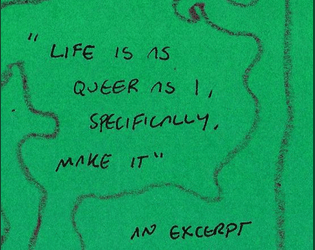 "LIFE IS AS
QUEER AS I,
SPECIFICALLY,
MAKE IT"
AN EXCERPT